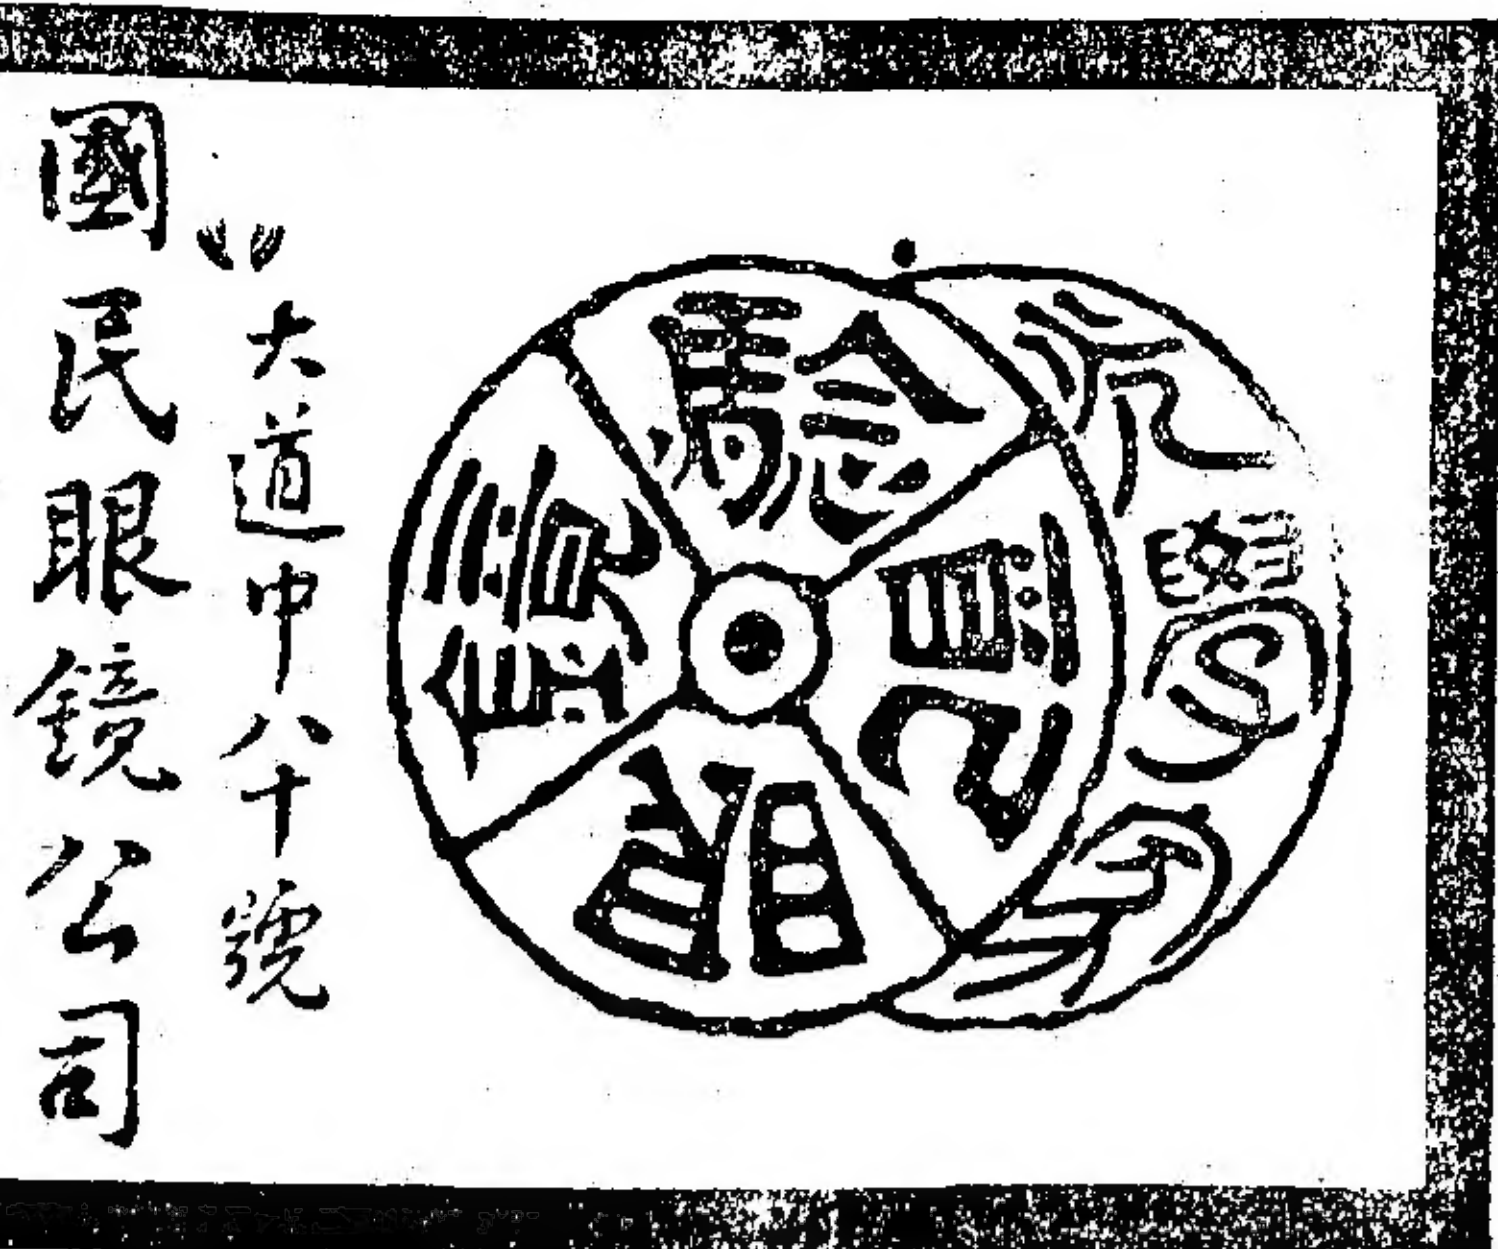 光學家
驗配眼鏡
大道中八十號
國民眼鏡公司